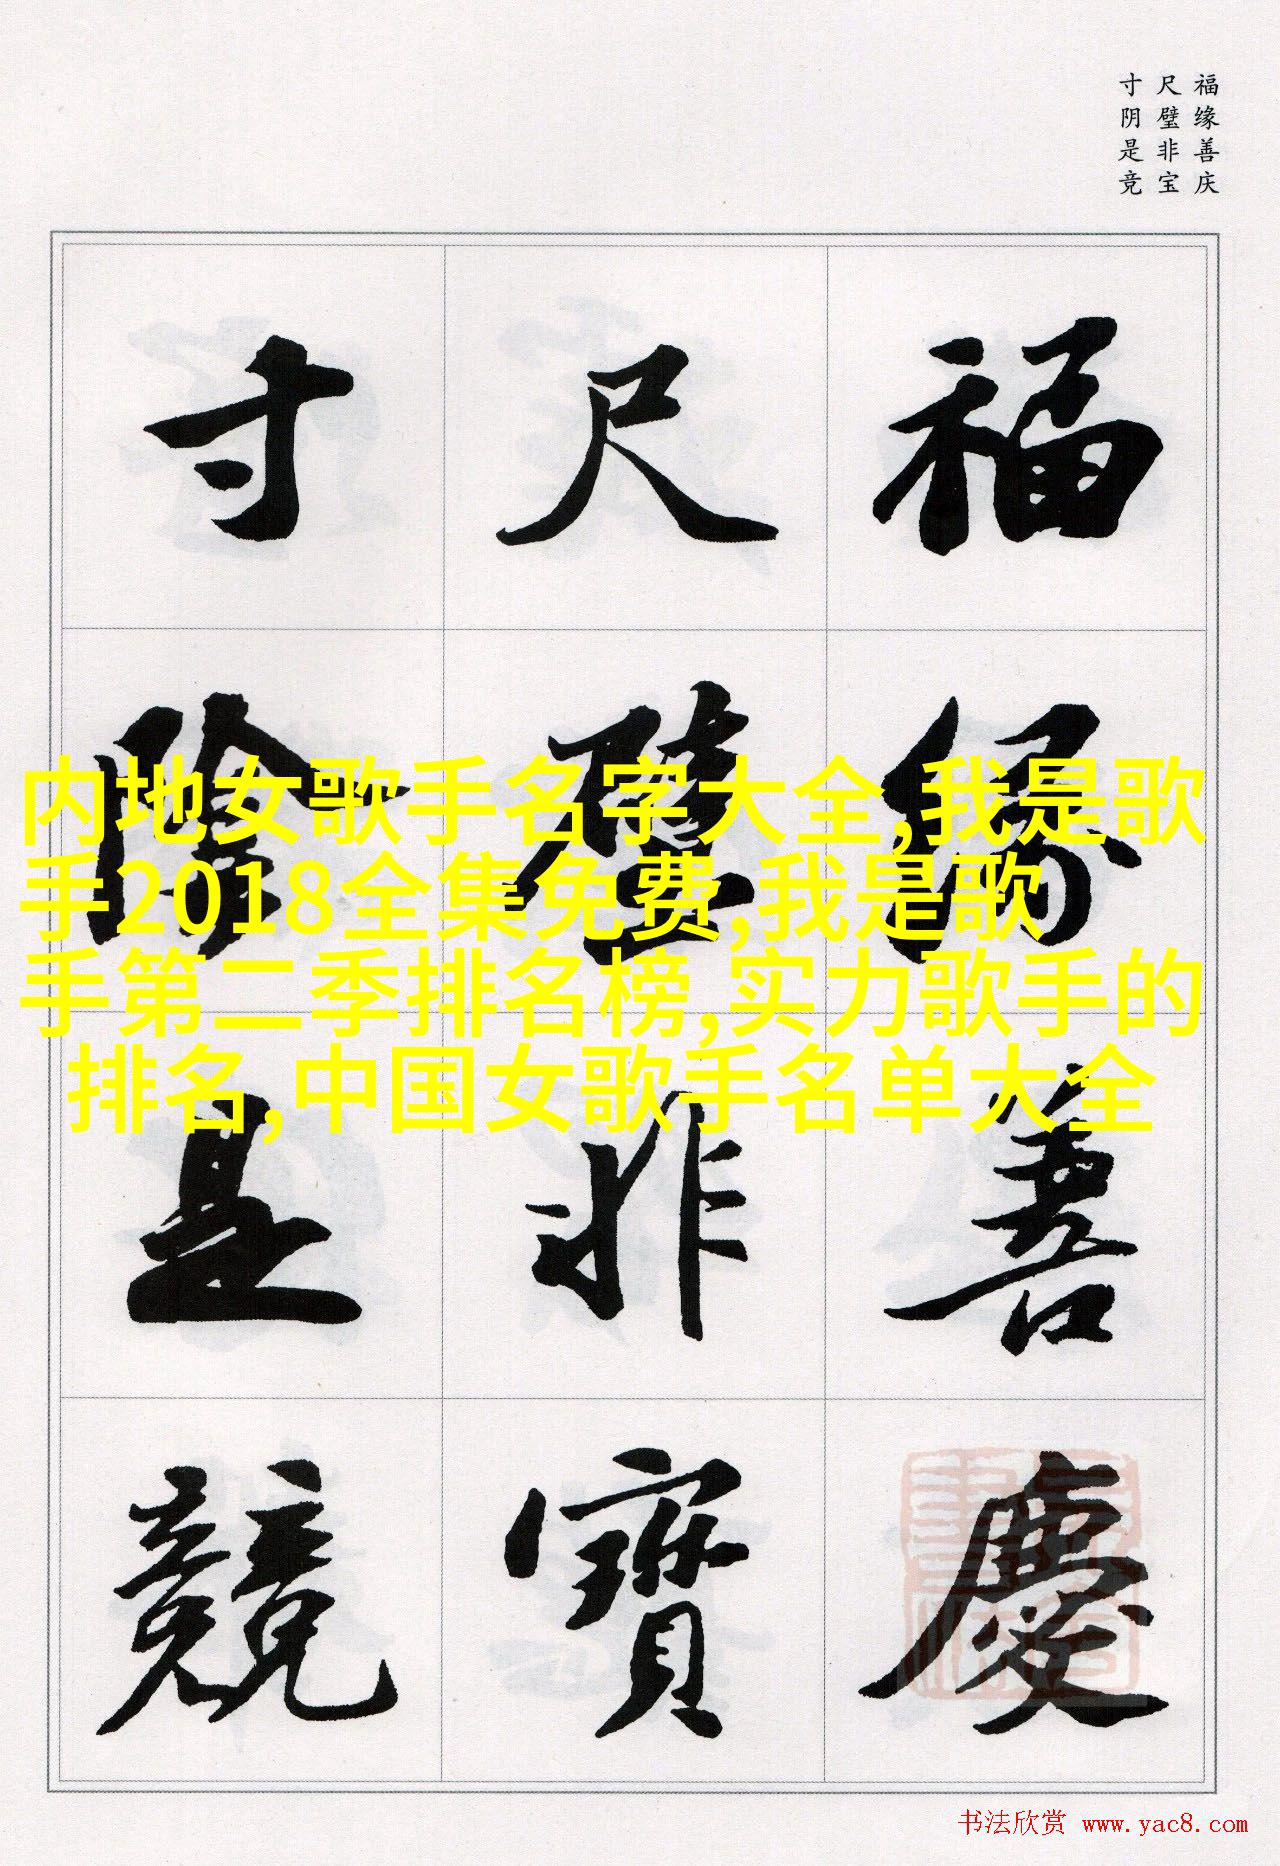 福缘善庆
尺璧非宝
寸阴是竞
福緣善慶
尺璧非寶
寸陰是競
内地女歌手名字大全,我是歌
手2018全集免费,我是歌
手第二季排名榜,实力歌手的
排名,中国女歌手名单大全
书法欣赏 www.yac8.com